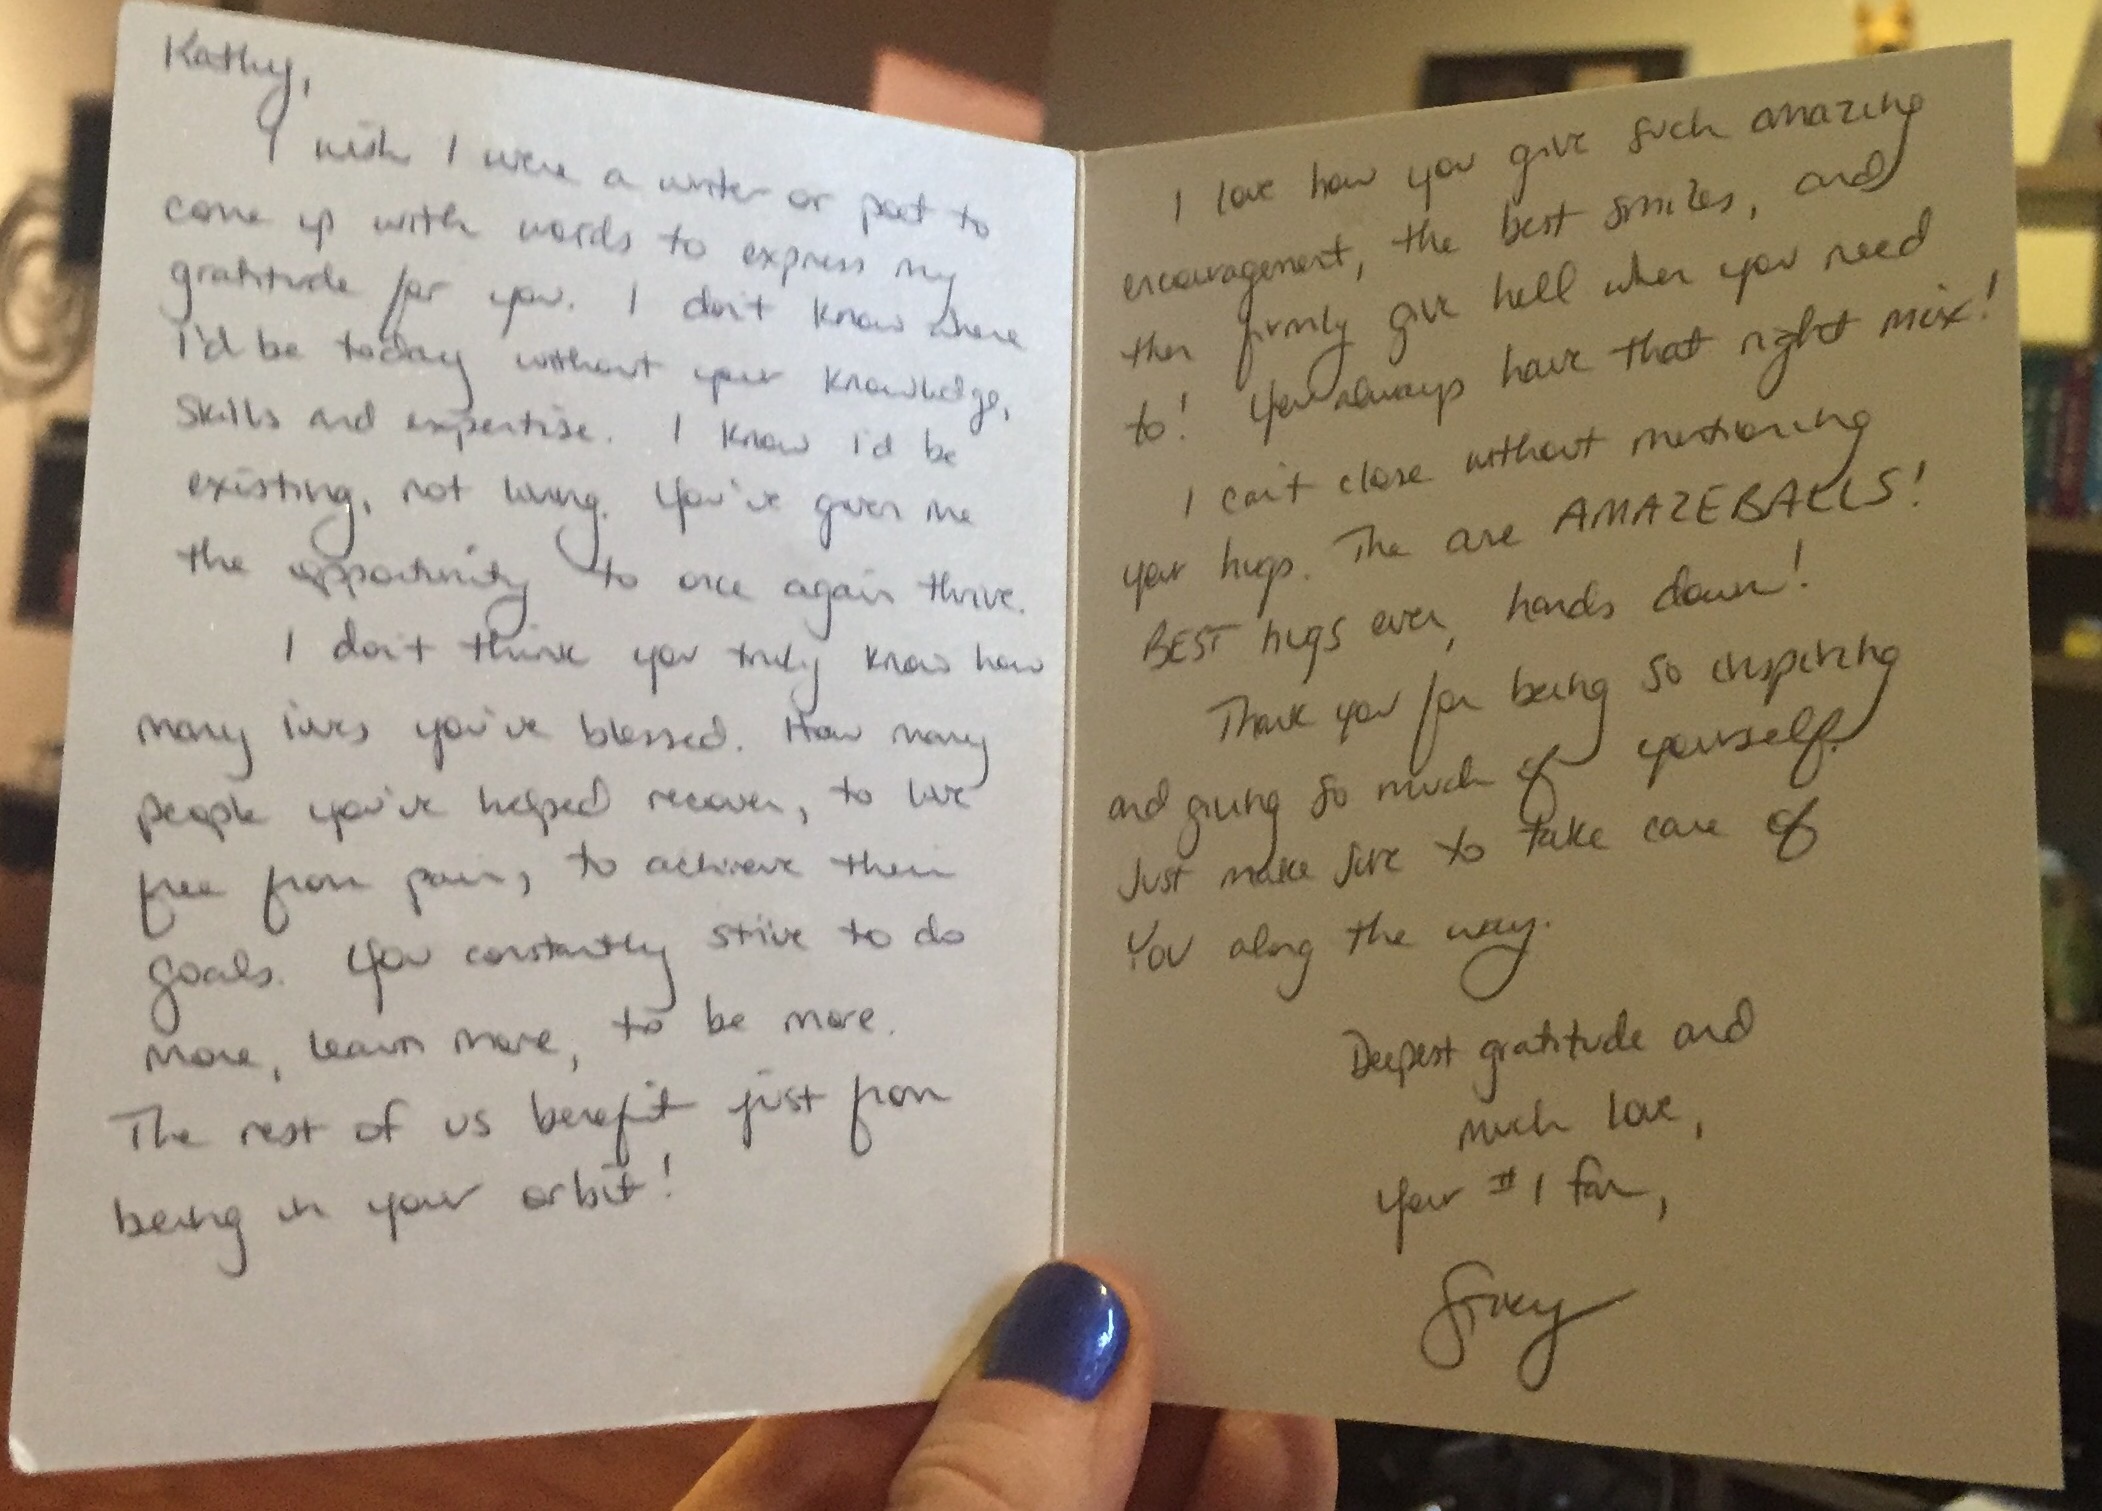 Kathy,
I wish I were a writer or poet to
come up with words to express my
gratitude for you. I don't know where
I'd be today without your knowledge,
skills and expertise. I know i'd be
existing, not living. You've given me
the opportunity to once again thrive.
I don't think you truly know how
many lives you've blessed. How many
people you've helped recover, to live
free from pain, to achieve their
goals. You constantly strive to do
more, learn more, to be more.
The rest of us benefit just from
being in your orbit!
I love how you give such amazing
encouragement, the best smiles, and
then firmly give hell when you need
to! You always have that right mix!
I can't close without mentioning
your hugs. The are AMAZEBALLS!
BEST hugs ever, hands down!
Thank you for being so inspiring
and giving so much of yourself.
Just make sure to take care of
YOU along the way.
Deepest gratitude and
much love,
Your #1 fan,
Stacy